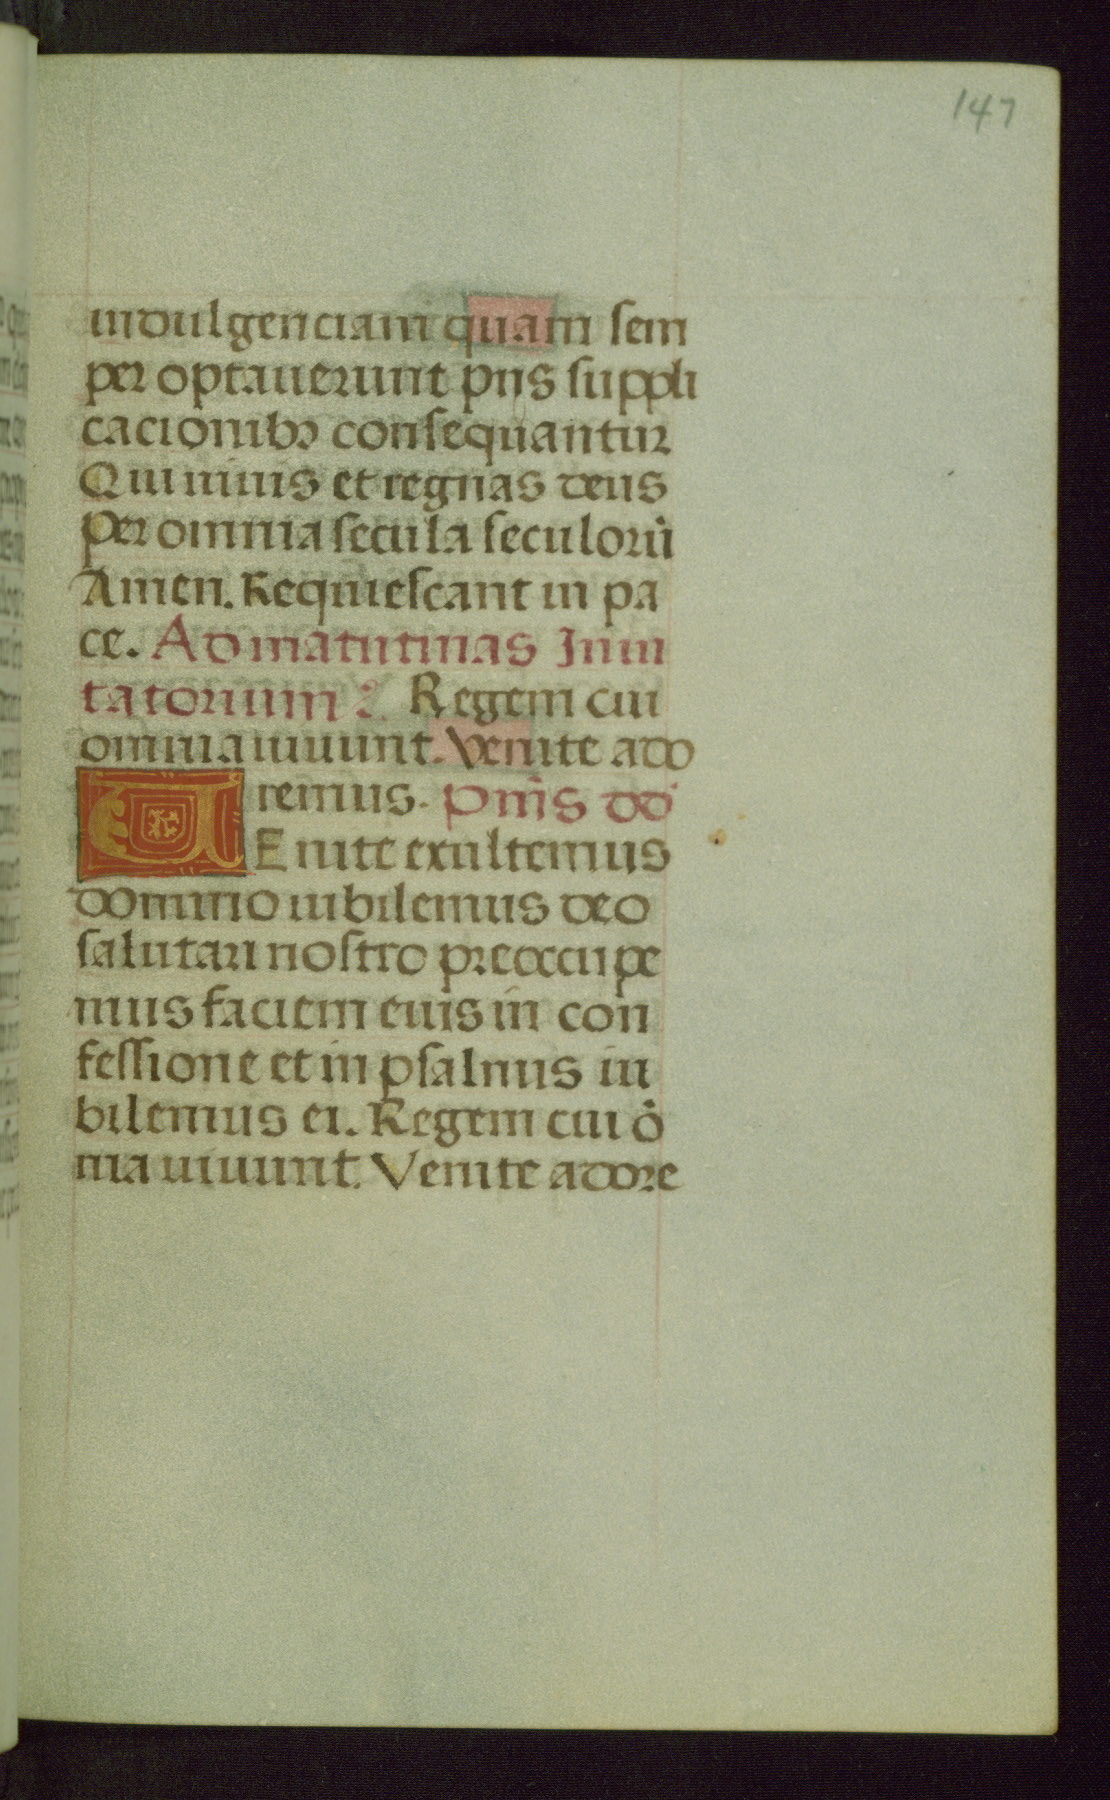 147
indulgenciam quam sem
per optauerunt piis suppli
cacionibꝰ consequantur
Qui uiuis et regnas deus
Per omnia secula seculorū
Amen. Requiescant in pa
ce. Ad matutinas Inui
tatorium Regem cui
omnia uiuunt. Venite ado
remus. Pm̄s dd
VEnite exultemus
domino iubilemus deo
salutari nostro preoccupe
mus faciem euis in con
fessione et in psalmis iu
bilemus ei. Regem cui ō
nia uiuunt. Venite adore